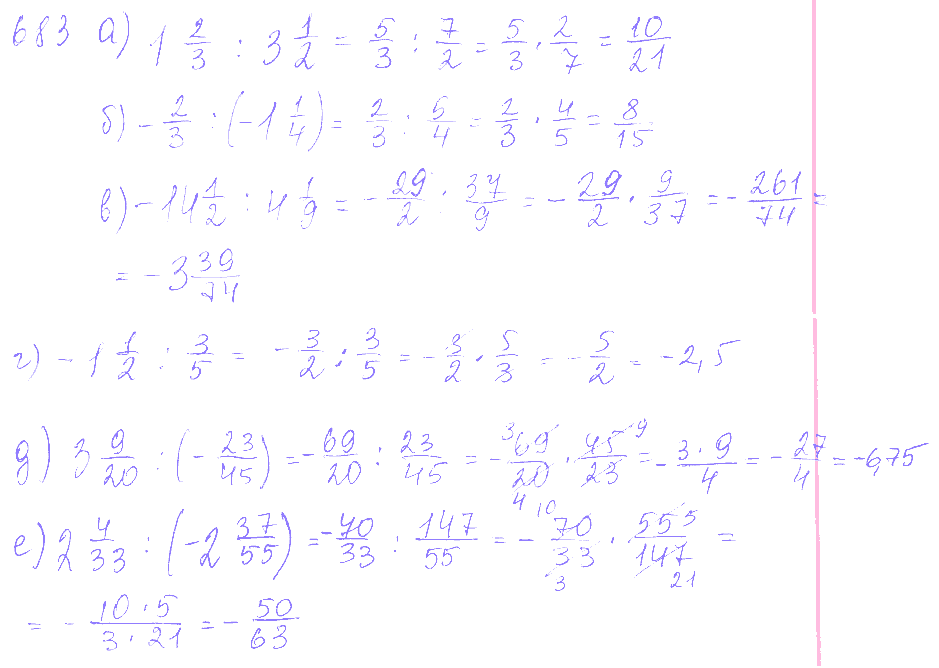 683 а) 1 2/3 : 3 1/2 = 5/3 : 7/2 = 5/3 · 2/7 = 10/21
б) - 2/3 : (-1 1/4) = 2/3 : 5/4 = 2/3 · 4/5 = 8/15
в) -14 1/2 : 4 1/9 = - 29/2 : 37/9 = - 29/2 · 9/37 = - 261/74 =
= -3 39/74
г) -1 1/2 : 3/5 = - 3/2 : 3/5 = - 3/2 · 5/3 = - 5/2 = -2,5
д) 3 9/20 : (- 23/45) = - 69/20 : 23/45 = - 3 69/20 4 · 45 9/23 = - 3 · 9/4 = - 27/4 = -6,75
е) 2 4/33 : (-2 37/55) = - 70/33 : 147/55 = - 10 70/33 3 · 55 5/147 21 =
= - 10 · 5/3 · 21 = - 50/63